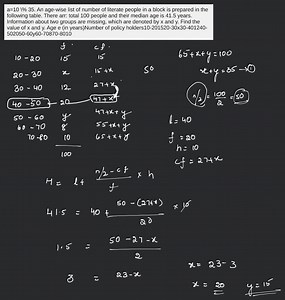 a=10 \% 35. An age-wise list of number of literate people in a block is prepared in the
following table. There arr: total 100 people and their median age is 41.5 years.
Information about two groups are missing, which are denoted by x and y. Find the
value of x and y. Age e (in years)Number of policy holders10-201520-30x30-401240-
502050-60y60-70870-8010
f cf
10-20 15 15
20-30 x 15+x
30-40 12 27+x
40-50 20 47+x
50-60 y 47+x+y
60-70 8 55+x+y
70-80 10 65+x+y
100
65+x+y=100
50
x+y=35-①
n/2 = 100/2 = 50
l=40
f=20
h=10
cf=27+x
M = l + n/2-cf / f × h
41.5 = 40 + 50-(27+x) / 20 × 10
1.5 = 50-27-x / 2
3 = 23-x
x=23-3
x=20 y=15